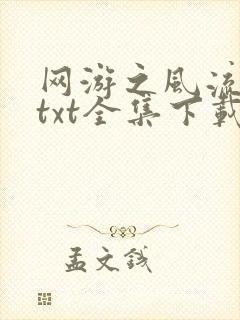 网游之风流
txt全集下载
孟文钱